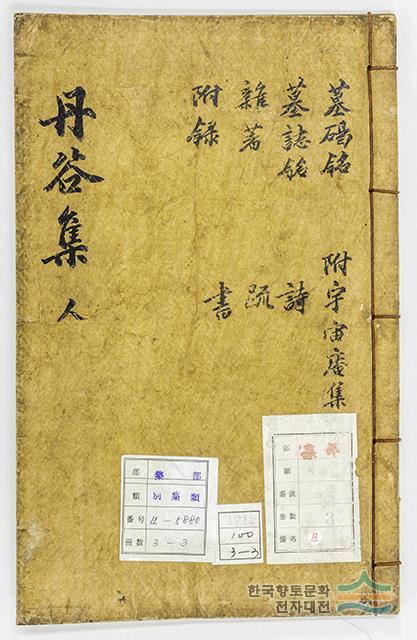 丹谷集 人
墓碣銘
墓誌銘
雜著
附錄
附宇宙庵集
詩
疏
書
部 集部
類 別集類
番号 11-5880
冊数 3-3
100
3-3
部
類
番號
冊數 3
備考
한국향토문화
전자대전